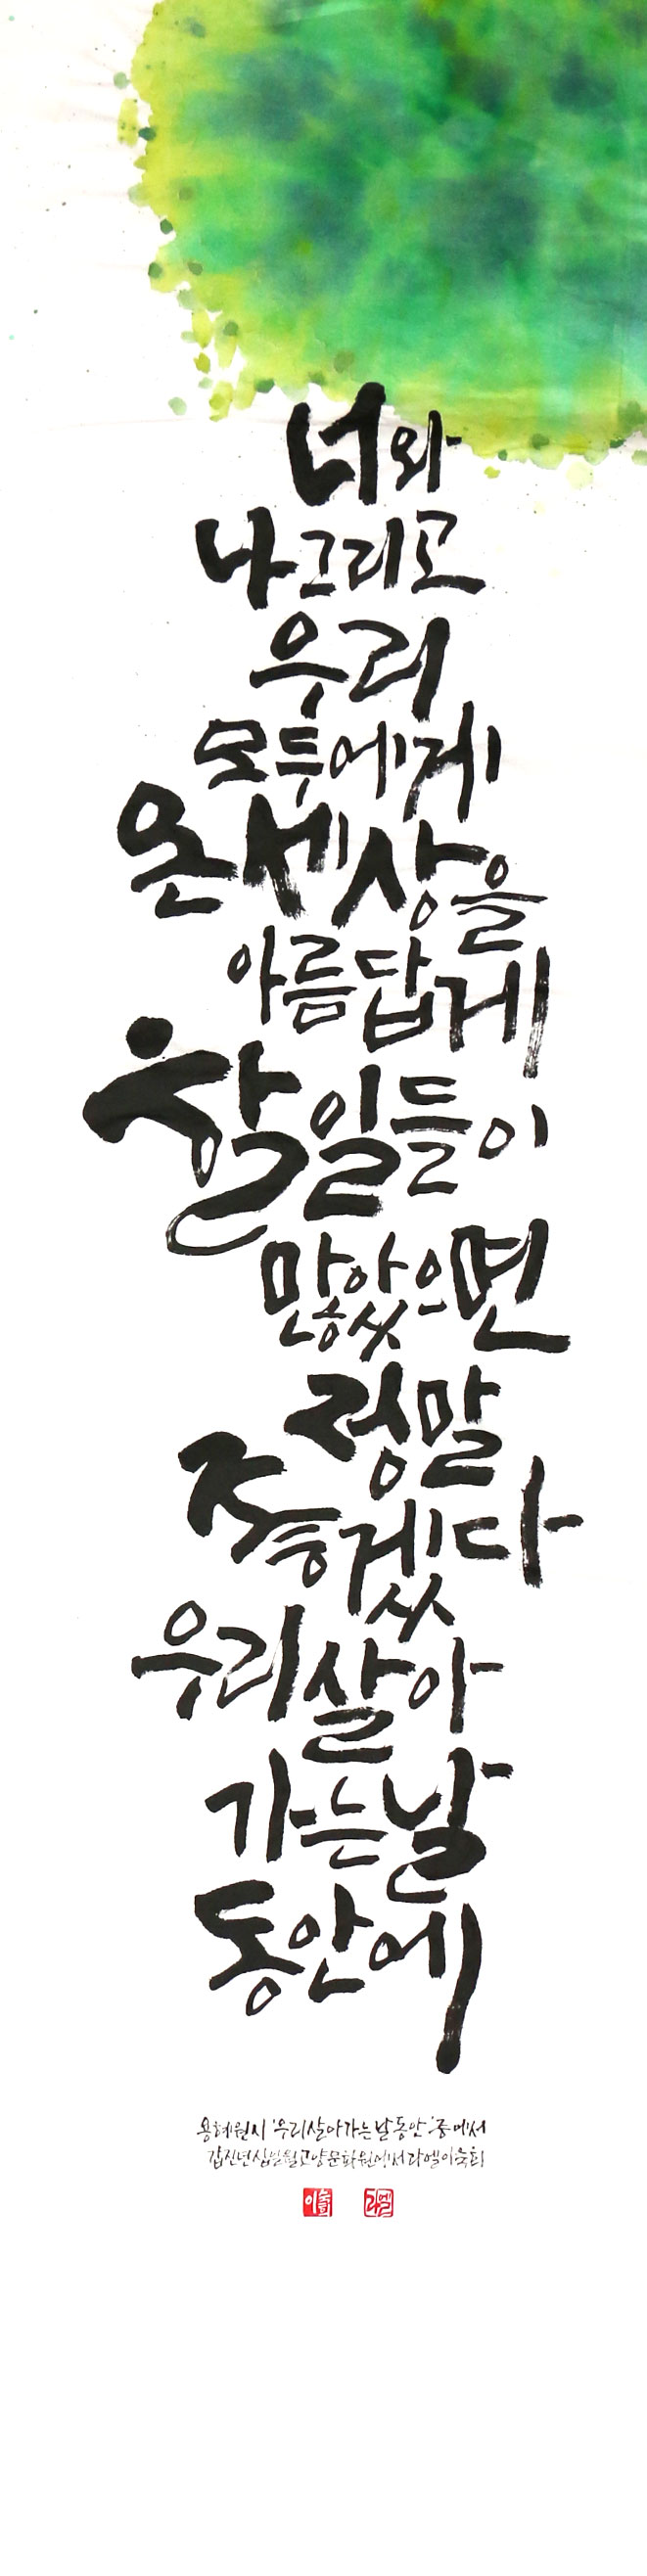 너와
나 그리고
우리
모두에게
온 세상을
아름답게
할 일들이
많았으면
정말
좋겠다
우리 살아
가는 날
동안에
용혜원 시 '우리 살아가는 날 동안' 중에서
갑진년 십일월 고양문화원에서 라엘 이숙희
라엘